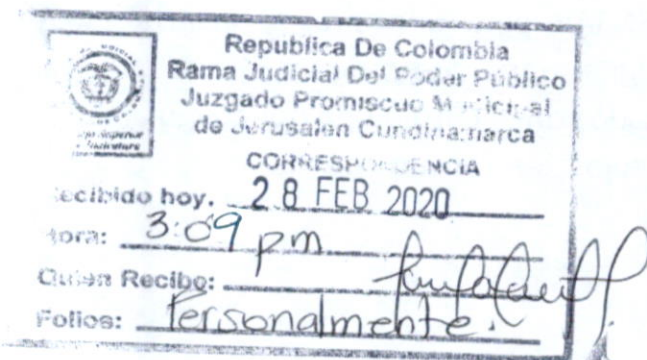 Republica De Colombia
Rama Judicial Del Poder Público
Juzgado Promiscuo Municipal
de Jerusalen Cundinamarca
CORRESPONDENCIA
Recibido hoy. 28 FEB 2020
Hora: 3:09 pm
Quien Recibo:
Folios: Personalmente.